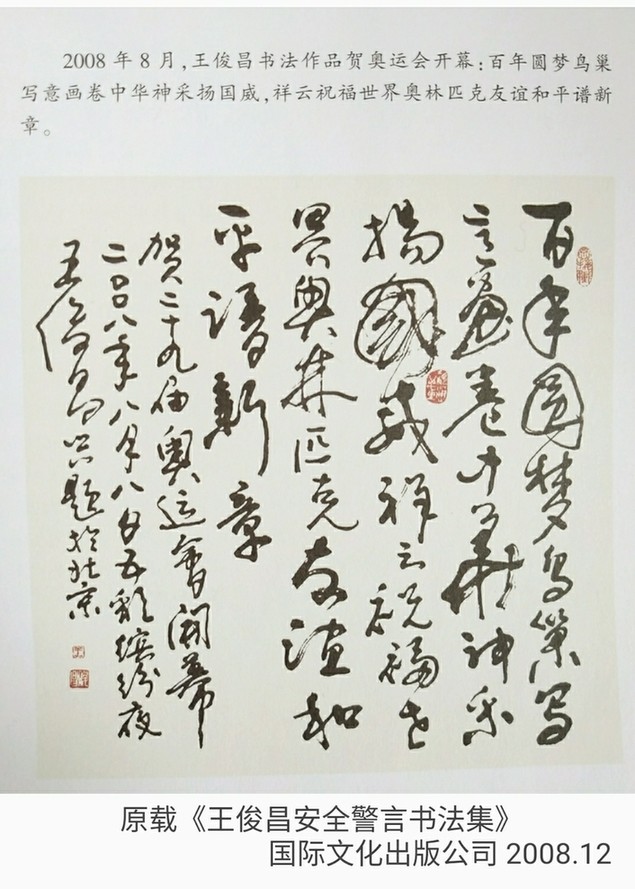 2008 年 8 月,王俊昌书法作品贺奥运会开幕:百年圆梦鸟巢
写意画卷中华神采扬国威,祥云祝福世界奥林匹克友谊和平谱新
章。
百年圆梦鸟巢写
意画卷中华神采
扬國威祥云祝福世
界奥林匹克友谊和
平谱新章
贺二十九届奥运會開幕
二〇〇八年八月八日五彩缤纷夜
王俊昌 题於北京
原载《王俊昌安全警言书法集》
国际文化出版公司 2008.12